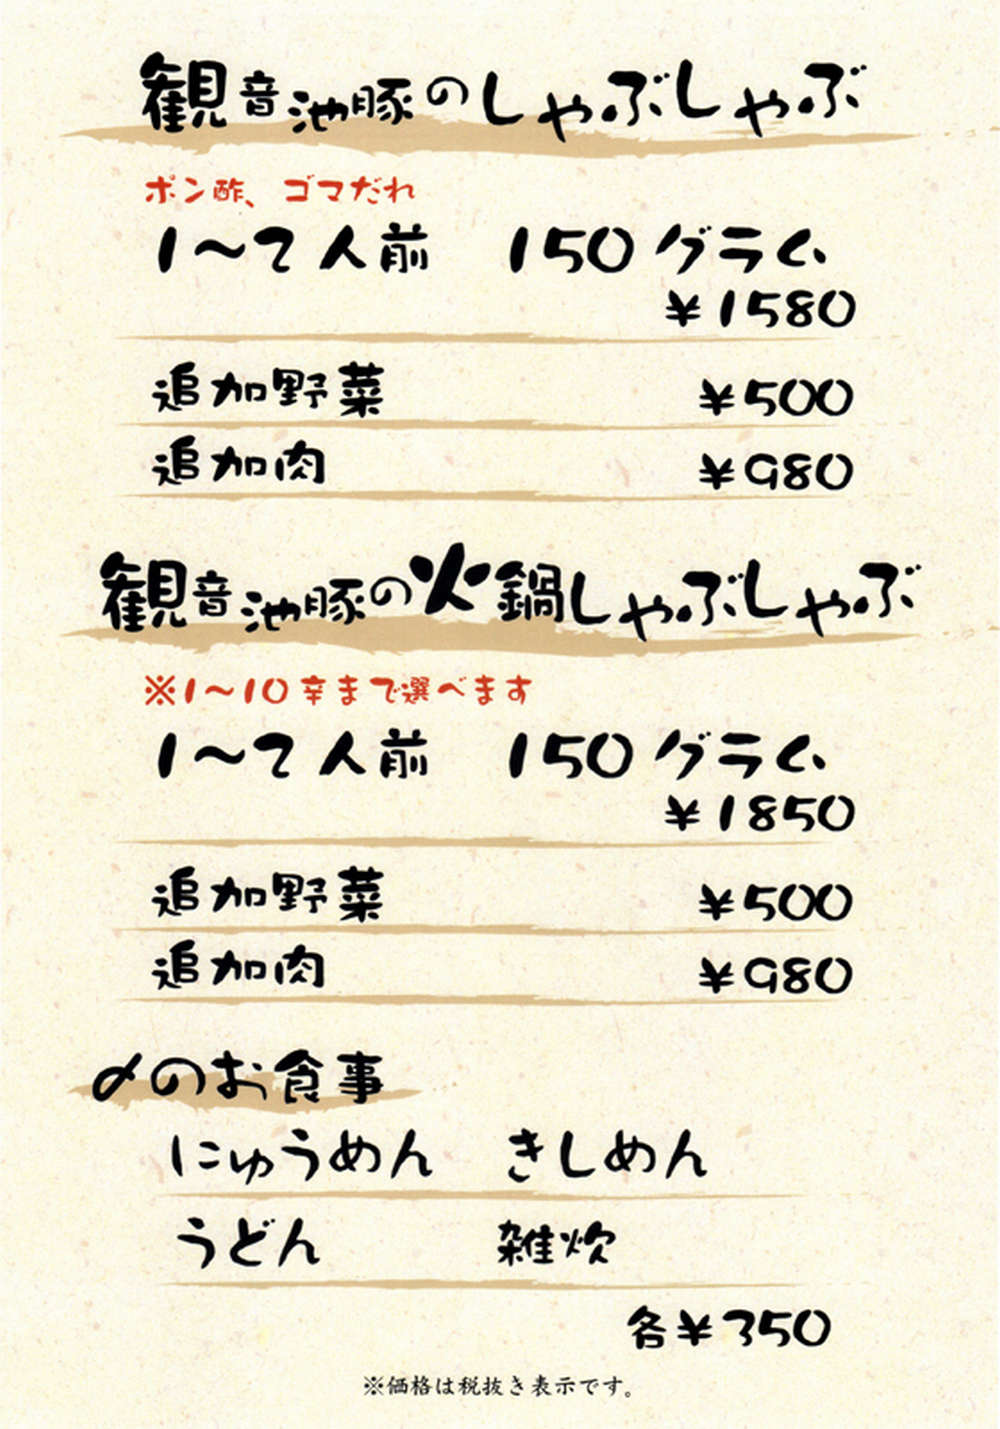 観音池豚のしゃぶしゃぶ
ポン酢、ゴマだれ
1～2人前 150グラム
¥1580
追加野菜 ¥500
追加肉 ¥980
観音池豚の火鍋しゃぶしゃぶ
※1～10辛まで選べます
1～2人前 150グラム
¥1850
追加野菜 ¥500
追加肉 ¥980
〆のお食事
にゅうめん きしめん
うどん 雑炊
各¥350
※価格は税抜き表示です。